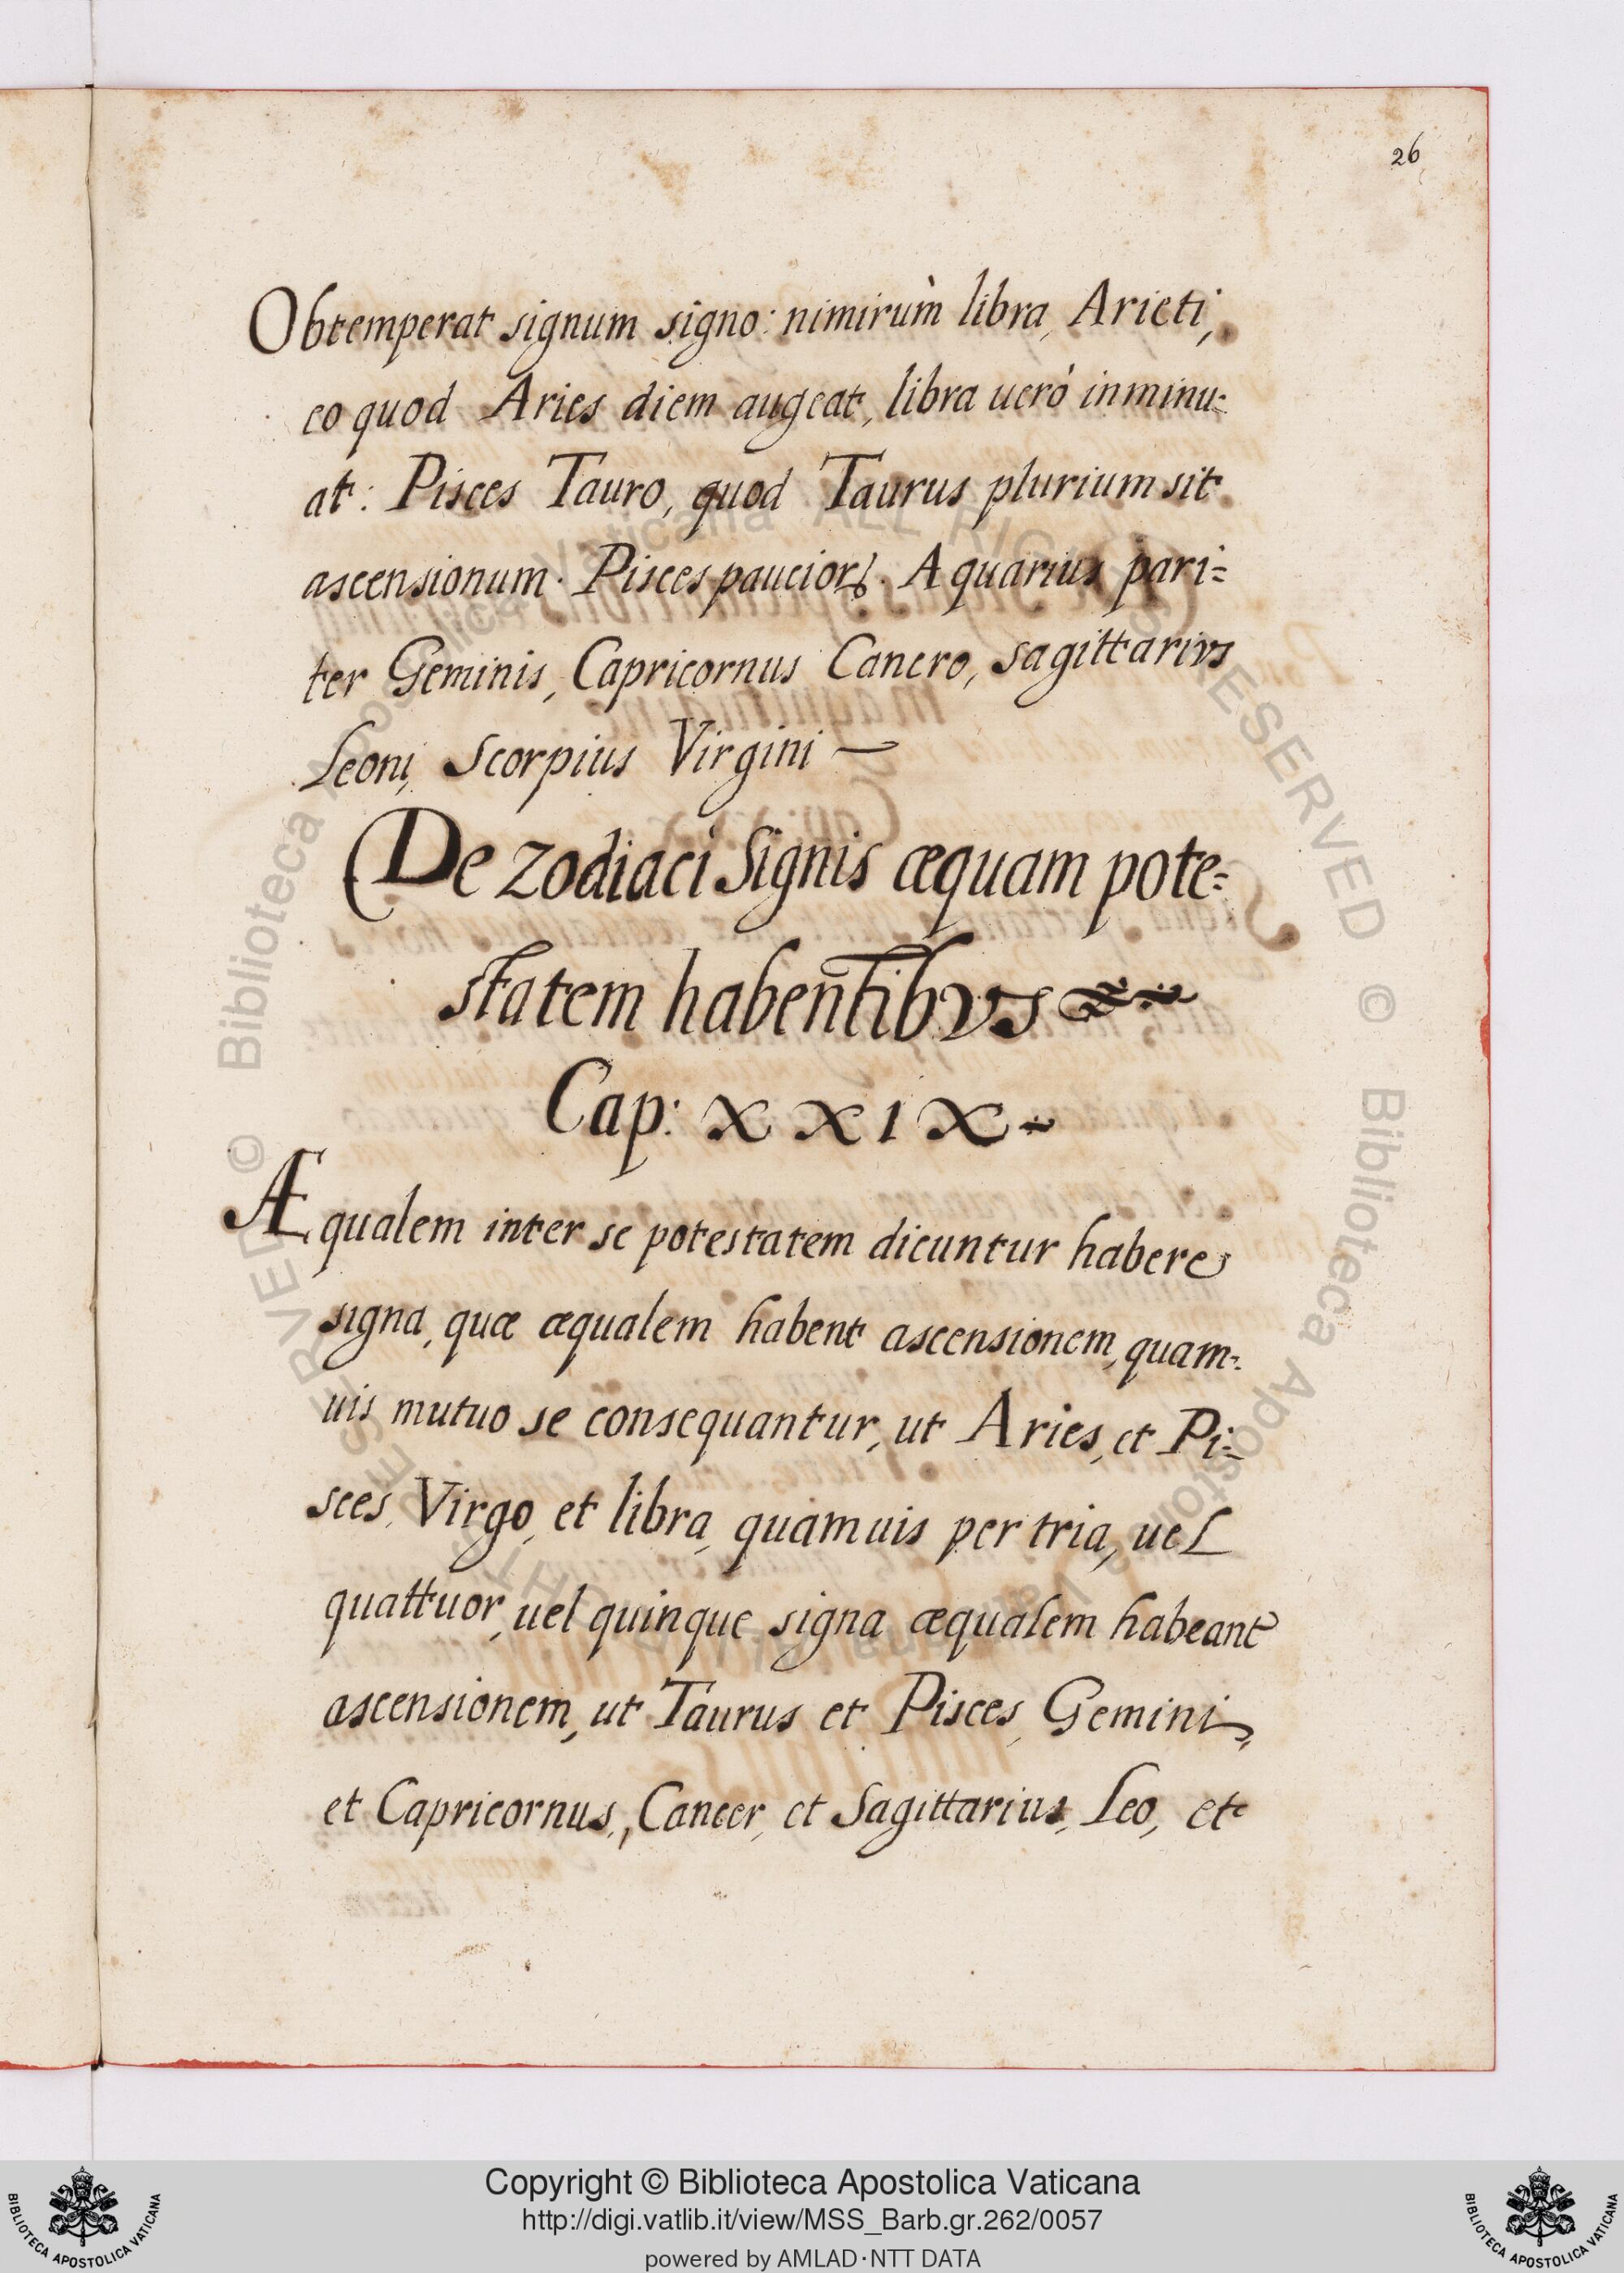 26
Obtemperat signum signo: nimirum̀ libra, Arieti,
eo quod Aries diem augeat, libra uerò inminu=
at: Pisces Tauro, quod Taurus plurium sit
ascensionum. Pisces pauciorꝝ. Aquarius pari=
ter Geminis, Capricornus Cancro, sagittarius
Leoni, Scorpius Virgini —
De zodiaci Signis æquam pote=
statem habentibus
Cap: XXIX
Æqualem inter se potestatem dicuntur habere
signa, quæ æqualem habent ascensionem, quam=
uis mutuo se consequantur, ut Aries, et Pi=
sces, Virgo, et libra, quamuis per tria, uel
quattuor, uel quinque signa æqualem habeant
ascensionem, ut Taurus et Pisces, Gemini,
et Capricornus, Cancer, et Sagittarius, Leo, et
© Biblioteca Apostolica Vaticana ALL RIGHTS RESERVED © Biblioteca Apostolica Vaticana ALL RIGHTS RESERVED
Copyright © Biblioteca Apostolica Vaticana
http://digi.vatlib.it/view/MSS_Barb.gr.262/0057
powered by AMLAD·NTT DATA
BIBLIOTECA APOSTOLICA VATICANA
BIBLIOTECA APOSTOLICA VATICANA